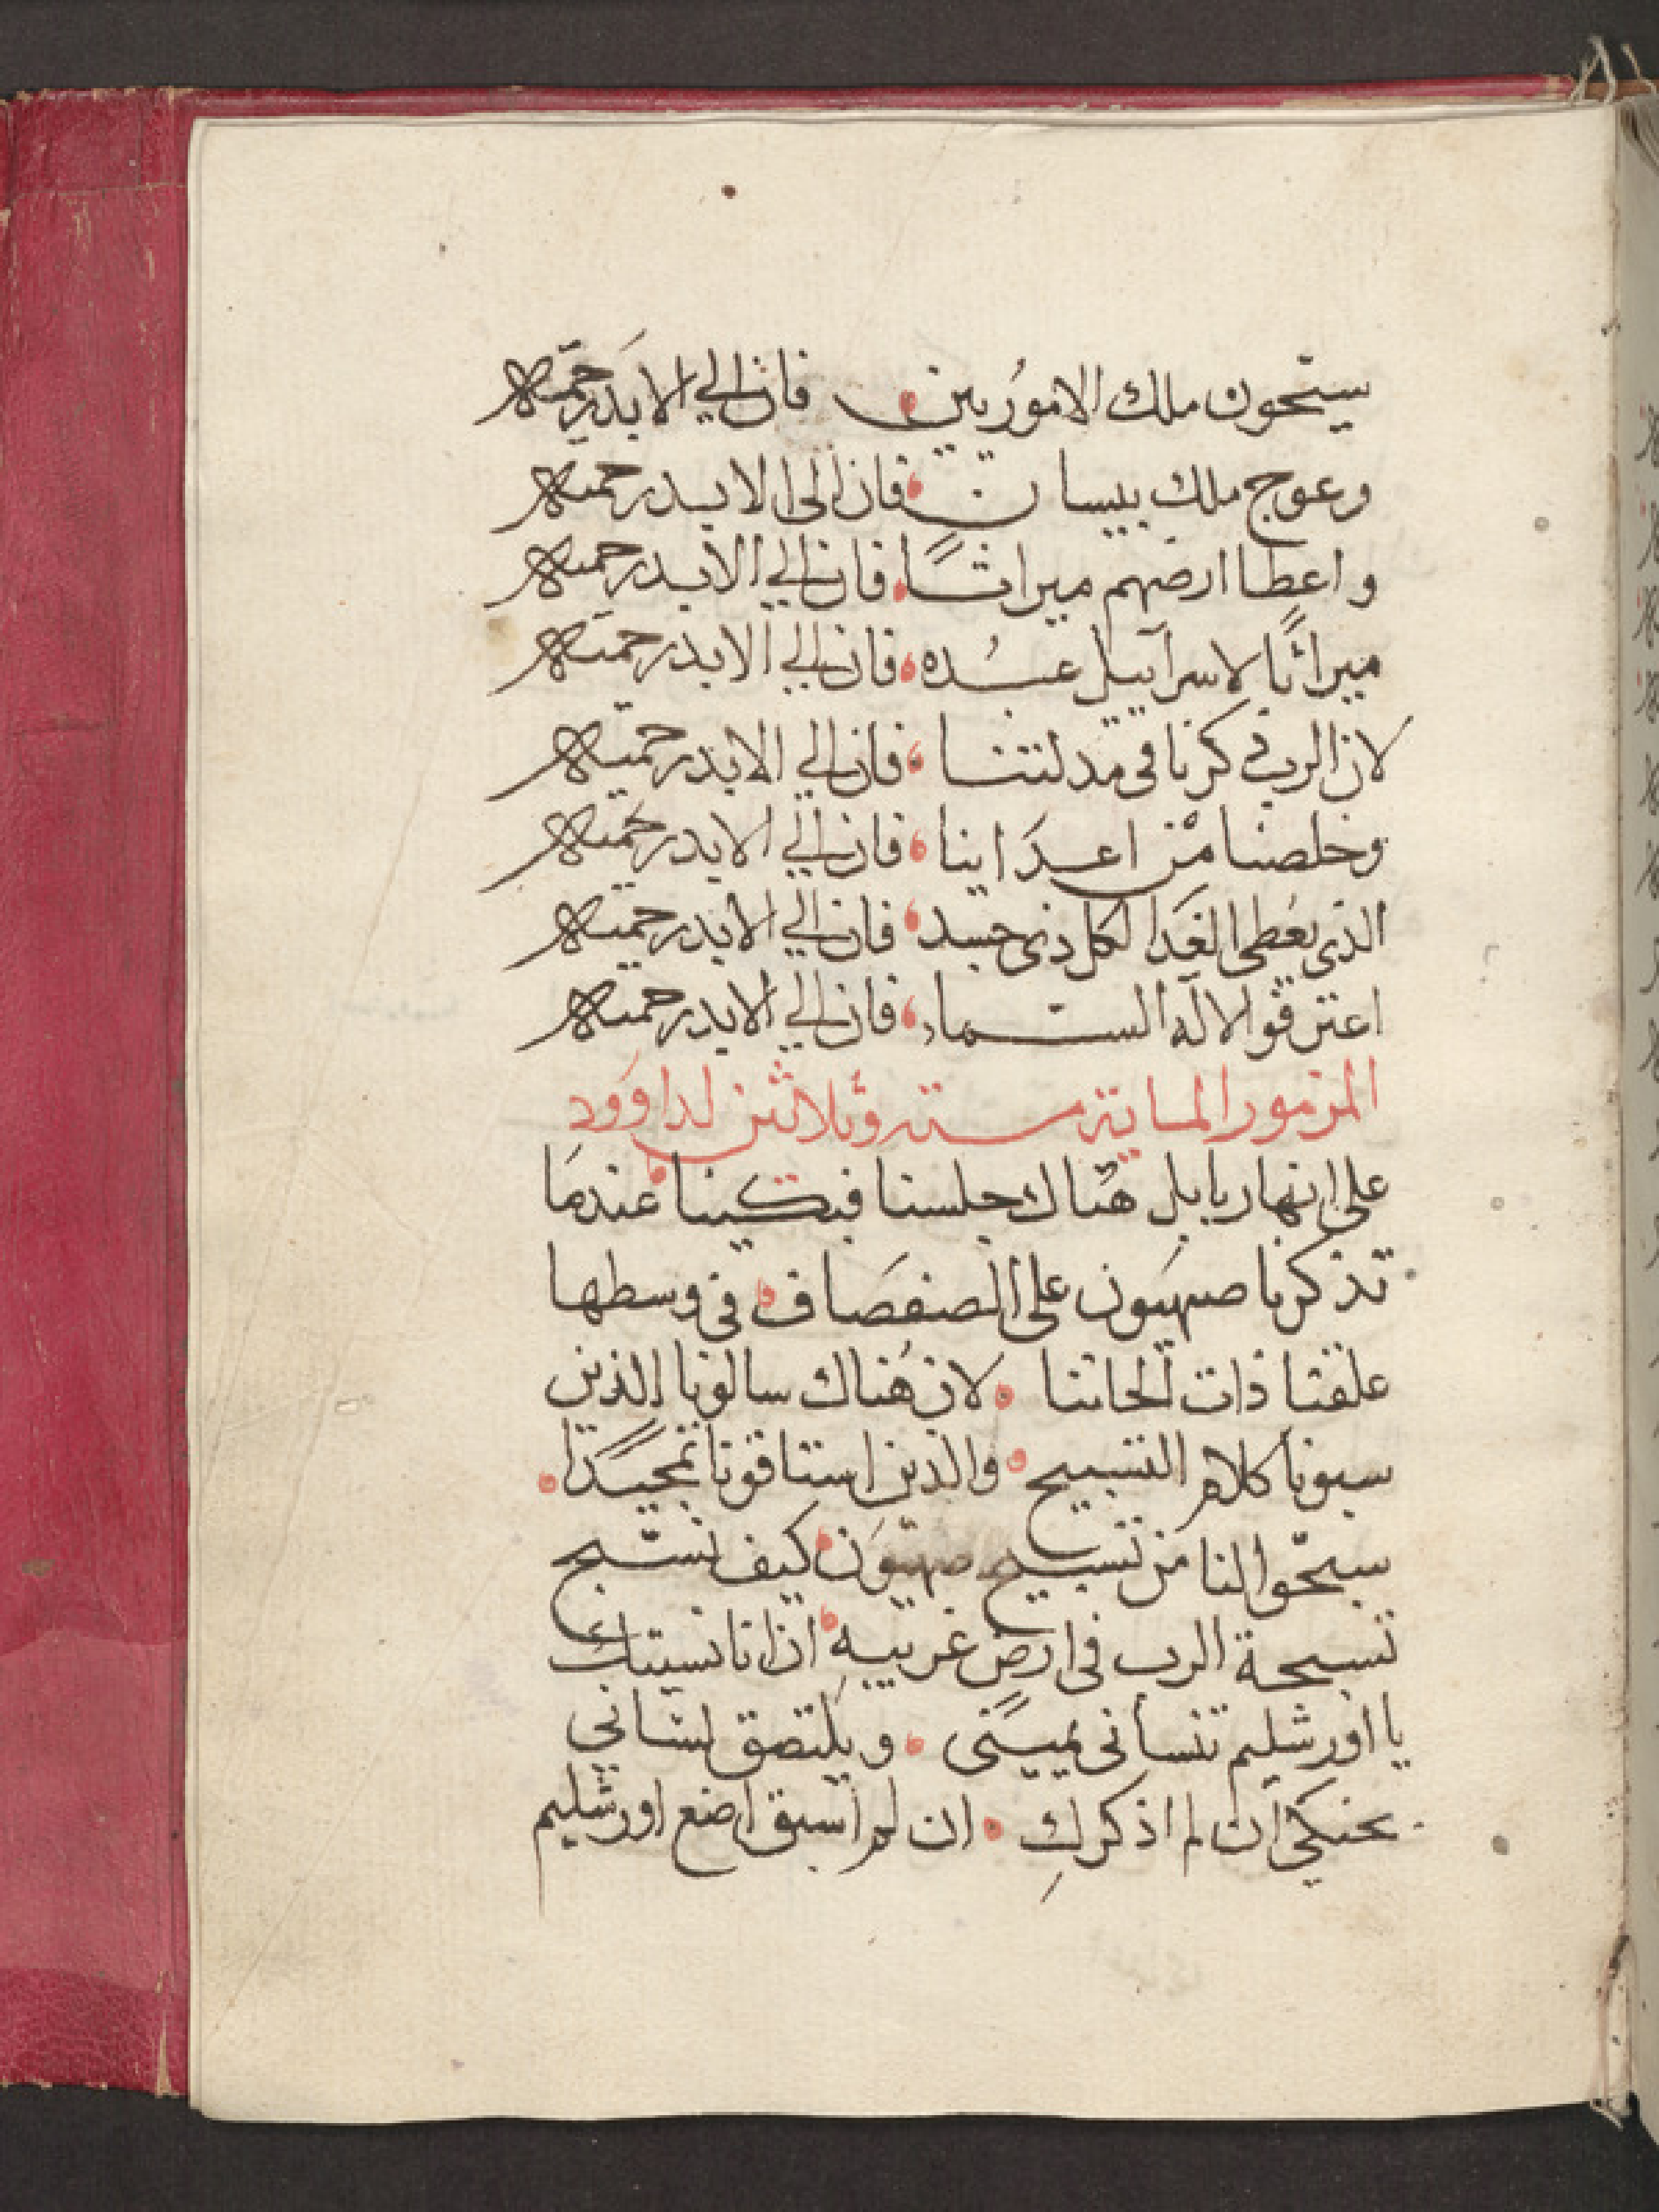 سيحون ملك الامُوريين فان الي الابد رحمته
وعوج ملك بيسان فان الى الابد رحمته
واعطا ارضهم ميراثًا فان الي الابد رحمته
ميراثًا لاسرآييل عبُده فان الي الابد رحمته
لان الرب ذكرنا في مدلتنا فان الي الابد رحمته
وخلصنا مْن اعدَاينا فان الي الابد رحمته
الذي يعُطي الغَدا لكل ذي جسد فان الي الابد رحمته
اعترفوا لاله السّماء فان الي الابد رحمته
المزمور الماية ستة وثلاثين لداوود
على انهار بابل هنّاك جلسنا فبكينا عندمَا
تذكرنا صهيَون على الصفصَاف في وسطها
علقنا ذات الحاننا لان هُناك سالونا الذين
سبونا كلام التسبيح والذين استاقونا تمجيدًا
سبحّوا لنا من تسبيح صهيوَن كيف نسبّح
تسبحة الرب في ارض غريبيهِ ان انا نسيتك
يا اورشليم تنساني يمينَى ويلتصق لسَاني
بحنكي ان لم اذكركِ ان لم اسبق اضع اورشليم